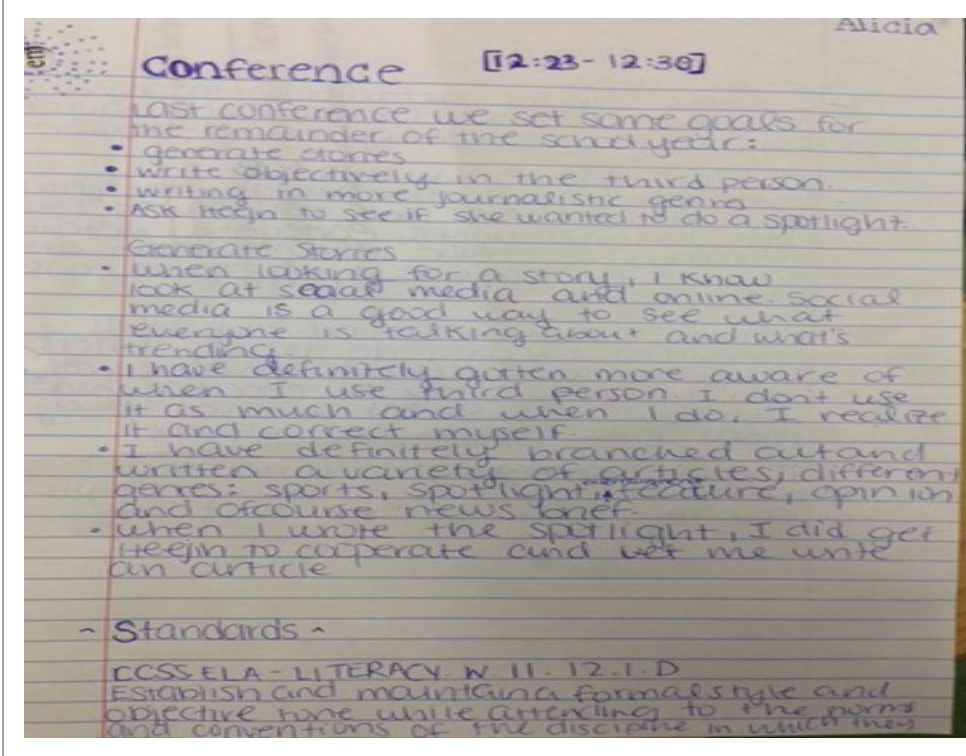 Alicia
Conference [12:23-12:30]
Last conference we set some goals for
the remainder of the school year:
• generate stories
• write objectively in the third person.
• writing in more journalistic genre
• ASK Heejin to see if she wanted to do a spotlight.
Generate Stories
• When looking for a story, I know
look at social media and online. Social
media is a good way to see what
everyone is talking about and what's
trending.
• I have definitely gotten more aware of
when I use third person. I don't use
it as much and when I do, I realize
it and correct myself.
• I have definitely branched out and
written a variety of articles, different
genres: sports, spotlight, feature, opinion
and ofcourse news brief.
• When I wrote the spotlight, I did get
Heejin to cooperate and let me write
an article
~ Standards ~
CCSS ELA-LITERACY. W. 11. 12. 1. D
Establish and maintain a formal style and
objective tone while attending to the norms
and conventions of the discipline in which they